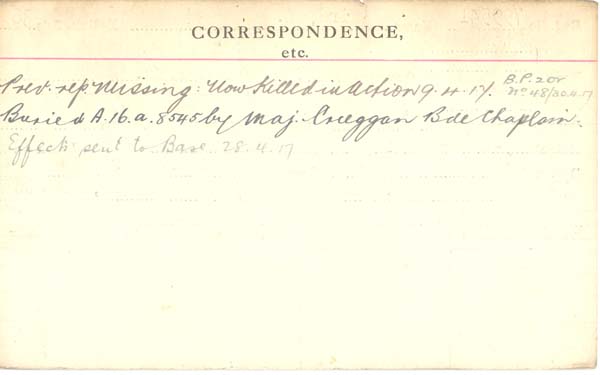 CORRESPONDENCE,
etc.
Prev. rep. Missing: Now Killed in Action 9.4.17.
B.P. 2 or
No 48/30.4.17
Buried A.16.a.8545 by Maj. Creeggan Bde Chaplain.
Effects sent to Base 28.4.17